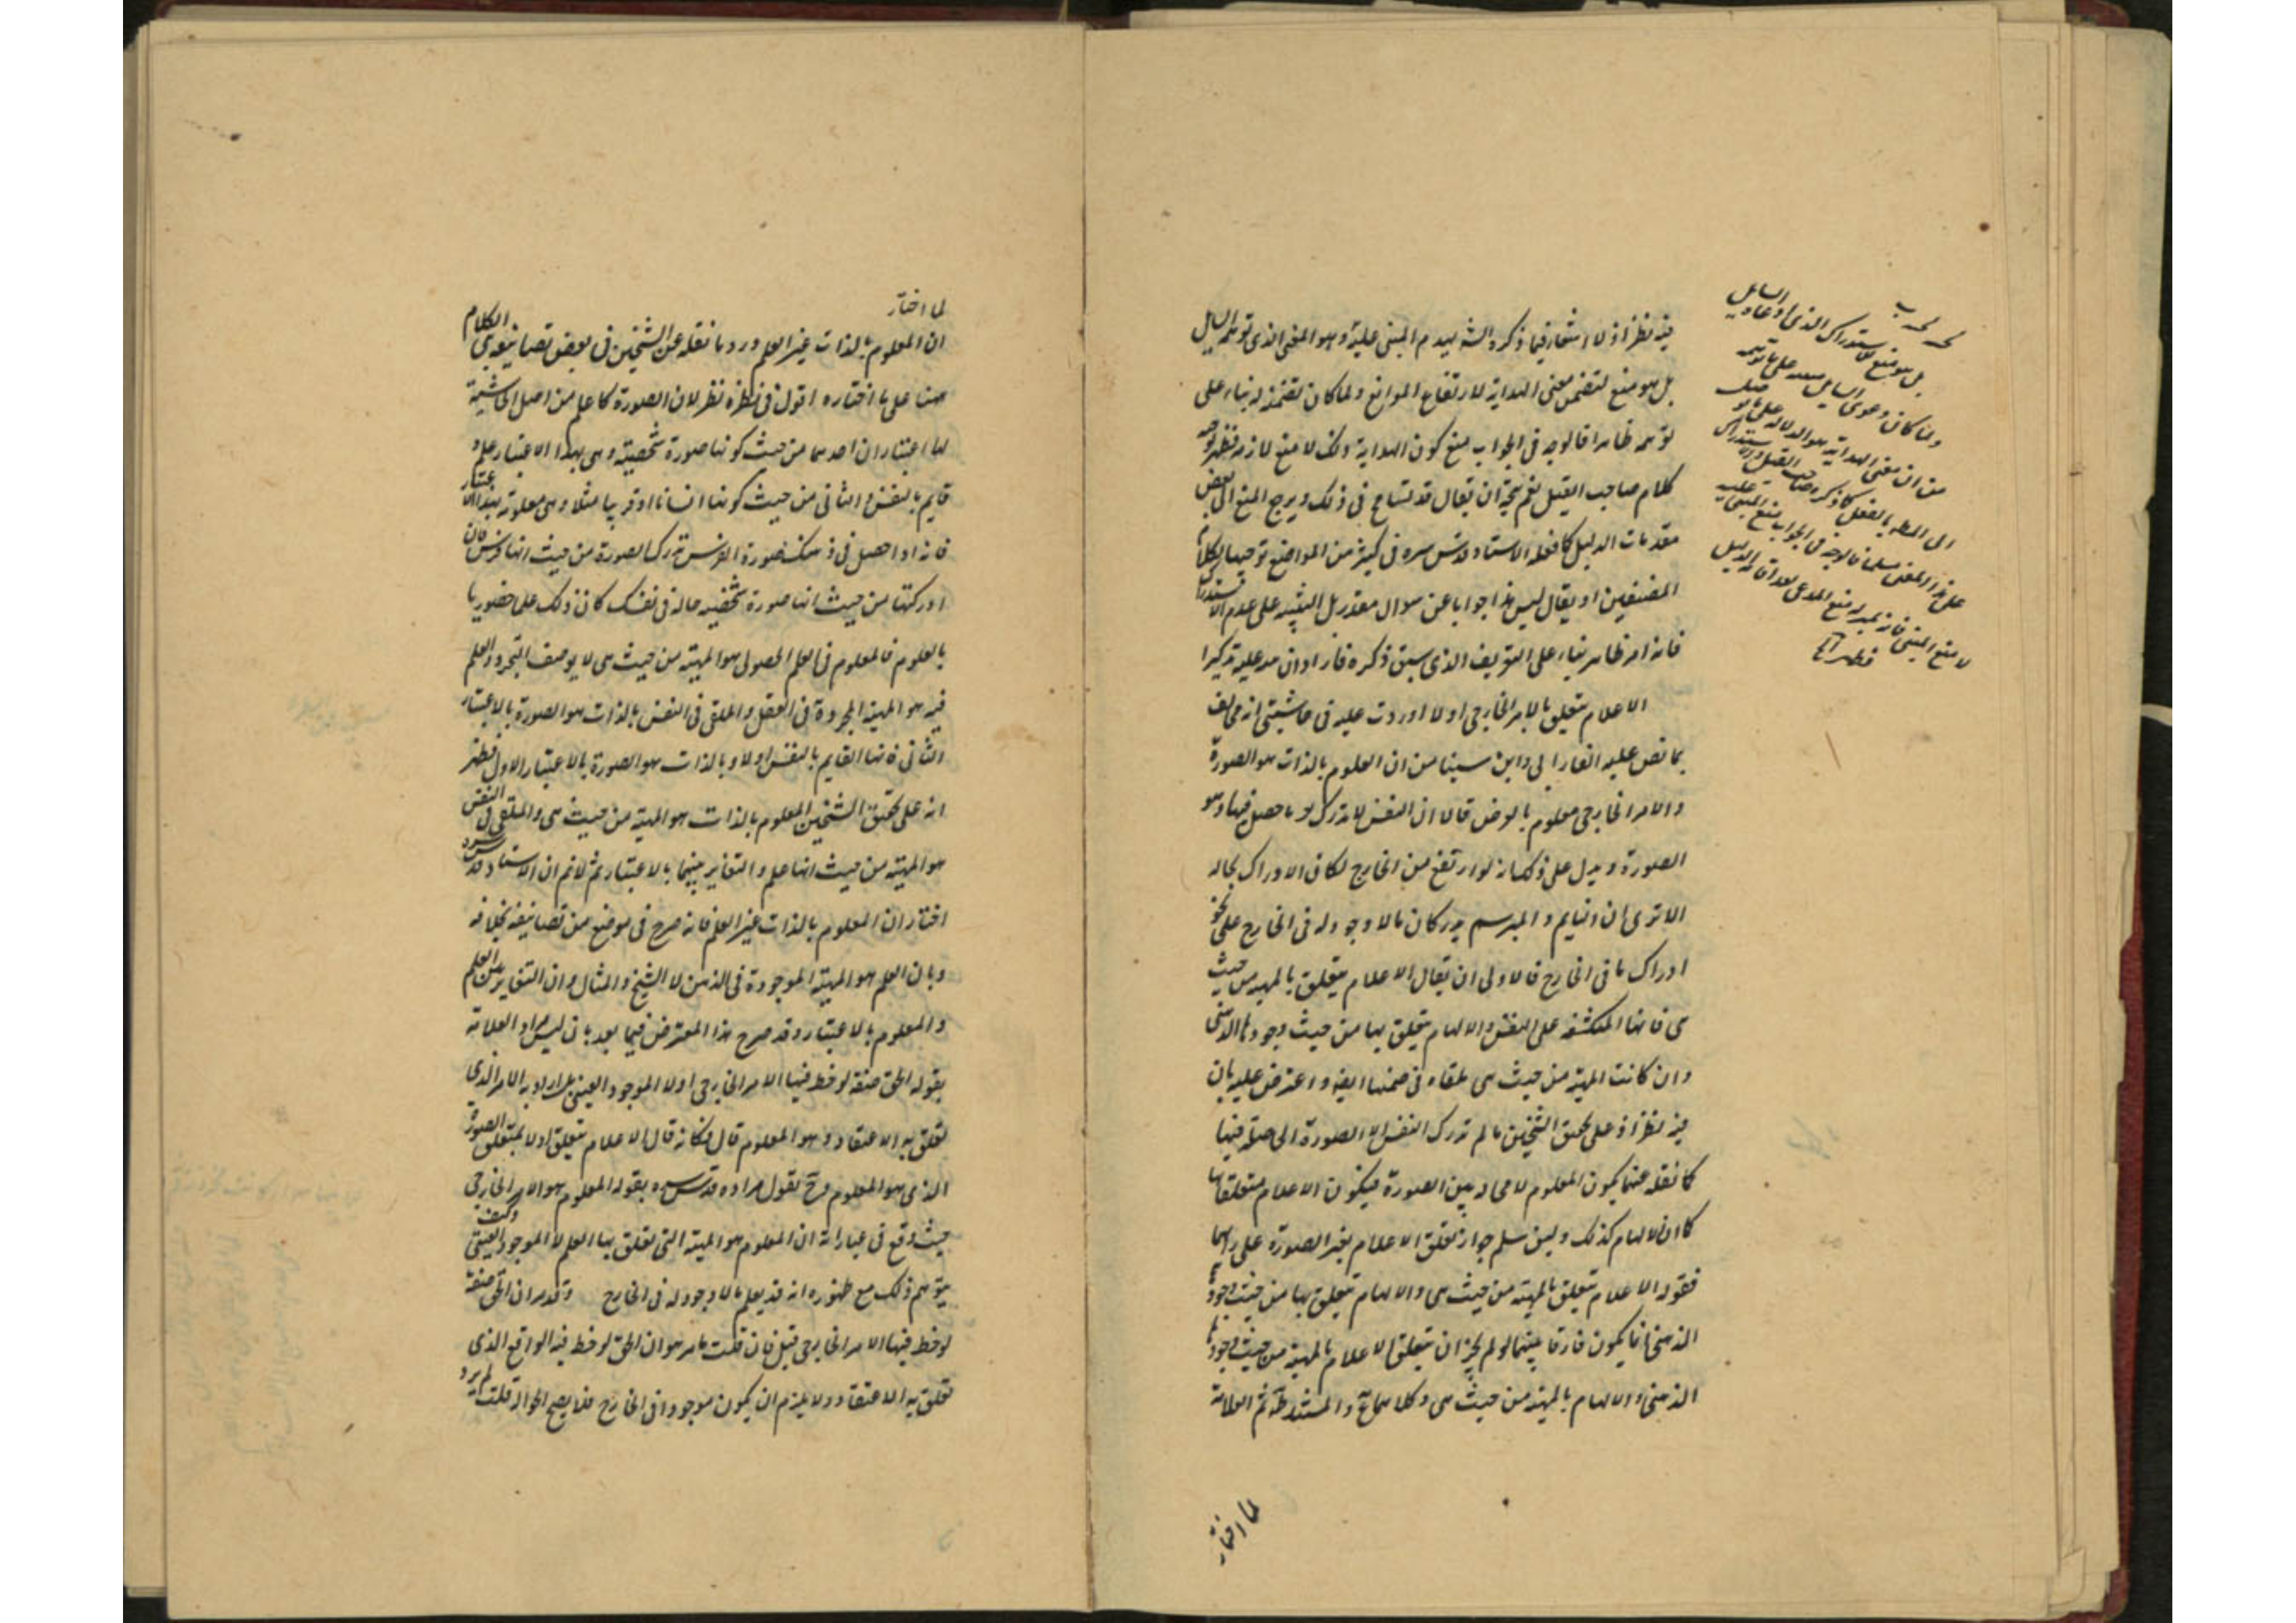 فيه نظر اذ لا اشعار فيما ذكره الشه بهدم المبنى عليه وهو المعنى الذى توهم السايل
بل هو منع لتضمن معنى الهداية لارتفاع الموانع ولما كان تضمنه له بناء على
توهمه ظاهرا فالوجه فى الجواب منع كون الهداية ذلك لا منع لازمه فظهر توجيه
كلام صاحب القيل نعم يتجه ان يقال قد تسامح فى ذلك ويرجع المنع الى بعض
مقدمات الدليل كما فعله الاستاد قدس سره فى كثير من المواضع توجيها لكلام
المصنفين او يقال ليس هذا جوابا عن سوال مقدر بل التنبيه على عدم الاستدراك
فانه امر ظاهر بناء على التعريف الذى سبق ذكره فاراد ان عليه تذكيرا
الاعلام يتعلق بالامر الخارجى اولا اوردت عليه فى حاشيتى انه مخالف
بما نص عليه الفارابى وابن سينا من ان المعلوم بالذات هو الصورة
والامر الخارجى معلوم بالعرض قالا ان النفس لا تدرك الا ما حصل فيها وهو
الصورة ويدل على ذلك انه لو ارتفع من الخارج لكان الادراك بحاله
الا ترى ان النايم والمبرسم يدركان ما لا وجود له فى الخارج على نحو
ادراك ما فى الخارج فالاولى ان يقال الاعلام يتعلق بالمهية من حيث
هى فانها المنكشفة على النفس والالهام يتعلق بها من حيث وجودها الذهنى
وان كانت المهية من حيث هى ملقاه فى ضمنها ايضا واعترض عليه بان
فيه نظر اذ على تحقيق الشيخين ما لم تدرك النفس الا الصورة الحاصلة فيها
كما نقله عنهما يكون المعلوم لا محاله عين الصورة فيكون الاعلام متعلقا بها
كما ان الالهام كذلك ولين سلم جواز تعلق الاعلام بغير الصورة على رايهما
فقوله الاعلام يتعلق بالمهية من حيث هى والالهام يتعلق بها من حيث وجودها
الذهنى انما يكون فارقا بينهما لو لم يجز ان يتعلق الاعلام بالمهية من حيث وجودها
الذهنى والالهام بالمهية من حيث هى وكلاهما والمستند ثم العلامة
لما اختار
بل هو منع للاستدراك الذى ادعاه السايل
ولما كان دعوى السايل على ما توهمه
من ان معنى الهداية هو الدلالة على ما يوصل
الى المطلوب بالفعل كما ذكره صاحب القيل
على هذا المعنى مسلما فالوجه فى الجواب منع المبنى عليه
لا منع المبنى فانه بمنزلة منع المدعى بعد اقامة الدليل
لما اختار
ان المعلوم بالذات غير العلم ورد ما نقله عن الشيخين فى بعض تصانيفه بنى الكلام
ههنا على ما اختاره اقول فى نظره نظر لان الصورة كما علم من اصل الحاشية
لها اعتباران احدهما من حيث كونها صورة شخصية وهى بهذا الاعتبار علم و
قايم بالنفس والثانى من حيث كونها انسانا او فرسا مثلا وهى معلومة بهذا الاعتبار
فانه اذا حصل فى ذهنك صورة الفرس تدرك الصورة من حيث انها فرس فان
ادركتها من حيث انها صورة شخصية حالة فى نفسك كان ذلك علما حضوريا
بالعلوم فالمعلوم فى العلم الحصولى هو المهية من حيث هى لا يوصف التجرد والعلم
فيه هو المهية المجردة فى العقل والملقى فى النفس بالذات هو الصورة بالاعتبار
الثانى فانها القايم بالنفس اولا وبالذات هو الصورة بالاعتبار الاول فظهر
انه على تحقيق الشيخين المعلوم بالذات هو المهية من حيث هى والملقى فى النفس
هو المهية من حيث انها علم والتغاير بينهما بالاعتبار ثم لا نم ان الاستاد قدس سره
اختار ان المعلوم بالذات غير العلم فانه صرح فى موضع من تصانيفه بخلافه
وبان العلم هو المهية الموجودة فى الذهن لا الشبح والمثال وان التغاير بين العلم
والمعلوم بالاعتبار وقد صرح هذا المعترض فيما بعد بان ليس مراد العلامة
بقوله الحق صفة لوحظ فيها الامر الخارجى اولا الموجود العينى بل اراد به الامر الذى
تعلق به الاعتقاد وهو المعلوم قال فكانه قال الاعلام يتعلق اولا بمتعلق الصورة
الذى هو المعلوم وح نقول مراده قدس سره بقوله المعلوم هو الامر الخارجى
حيث وقع فى عباراته ان المعلوم هو المهية التى تعلق بها العلم لا الموجود العينى وكيف
يتوهم ذلك مع ظهوره انه قد يعلم ما لا وجود له فى الخارج وقد مر ان الحق صفة
لوحظ فيها الامر الخارجى قيل فان قلت ما مر هو ان الحق لوحظ فيه الواقع الذى
تعلق به الاعتقاد ولا يلزم ان يكون موجودا فى الخارج فلا يصح الحوالة قلت لم يرد